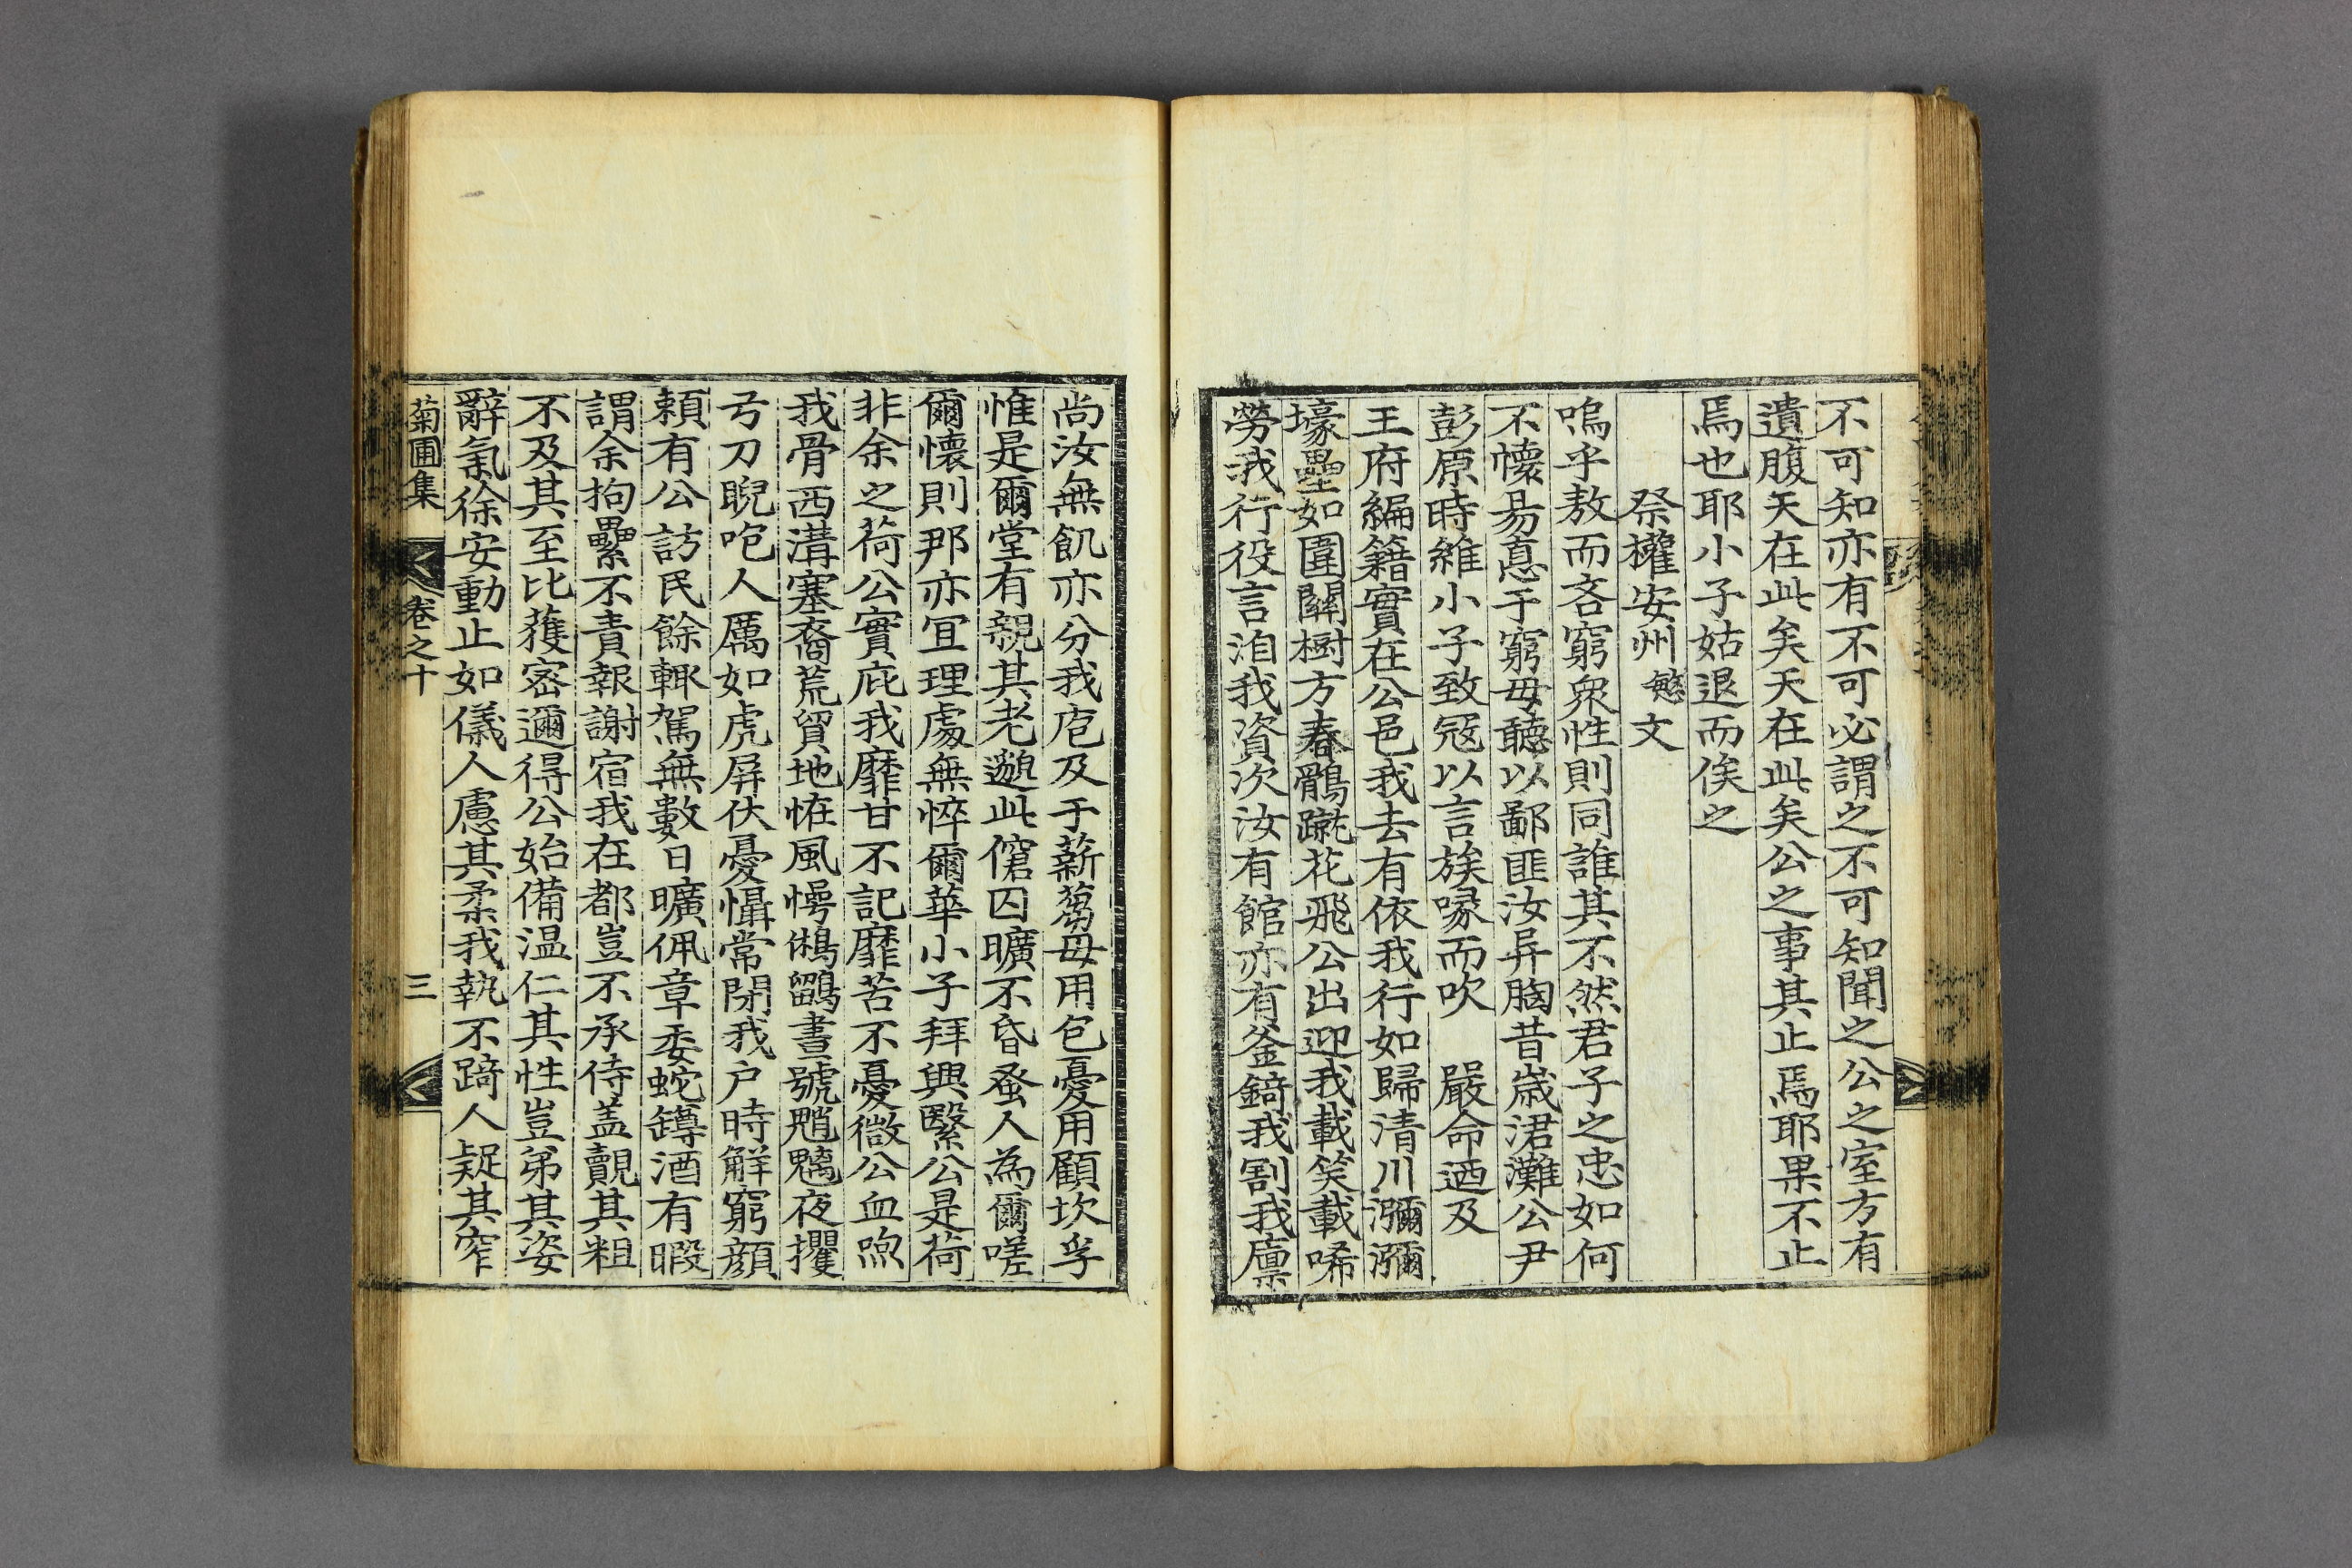 不可知亦有不可必謂之不可知聞之公之室方有
遺腹天在此矣天在此矣公之事其止焉耶果不止
焉也耶小子姑退而俟之
祭權安州慜文
嗚乎敖而吝窮衆性則同誰其不然君子之忠如何
不懷昜悳于窮毋聽以鄙匪汝异胸昔歲涒灘公尹
彭原時維小子致冦以言族喙而吹 嚴命迺及
王府編籍實在公邑我去有依我行如歸清川瀰瀰
壕壘如圍闢樹方春鶻蹴花飛公出迎我載笑載唏
勞我行役言洎我資次汝有館亦有釜錡我割我廪
尚汝無飢亦分我庖及于薪蒭毋用包憂用顧坎孚
惟是爾堂有親其老邈此傖囚曠不昏蚤人為爾嗟
爾懷則那亦宜理處無悴爾華小子拜興繄公是荷
非余之荷公實庇我靡甘不記靡苦不憂微公血喣
我骨西溝塞裔荒貿地恠風愕鵂鶹晝號魈魑夜攫
弓刀睨咆人厲如虎屛伏憂懾常閉我户時觧窮顔
頼有公訪民餘輙駕無數日曠佩章委蛇罇酒有暇
謂余拘纍不責報謝宿我在都豈不承侍盖覿其粗
不及其至比獲宻邇得公始備温仁其性豈弟其姿
辭氣徐安動止如儀人慮其柔我執不踦人疑其窄
菊圃集 卷之十 三